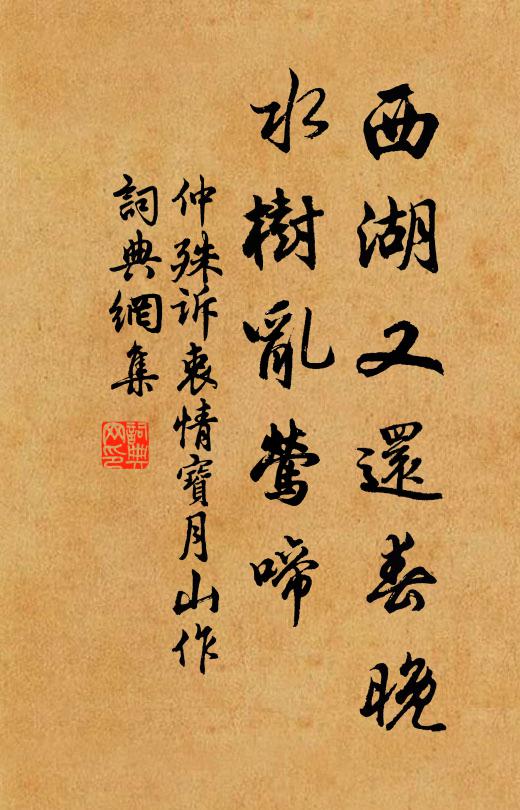 西湖又還春晚
水樹亂鶯啼
仲殊訴衷情寶月山作
詞典網集
詞典
网印